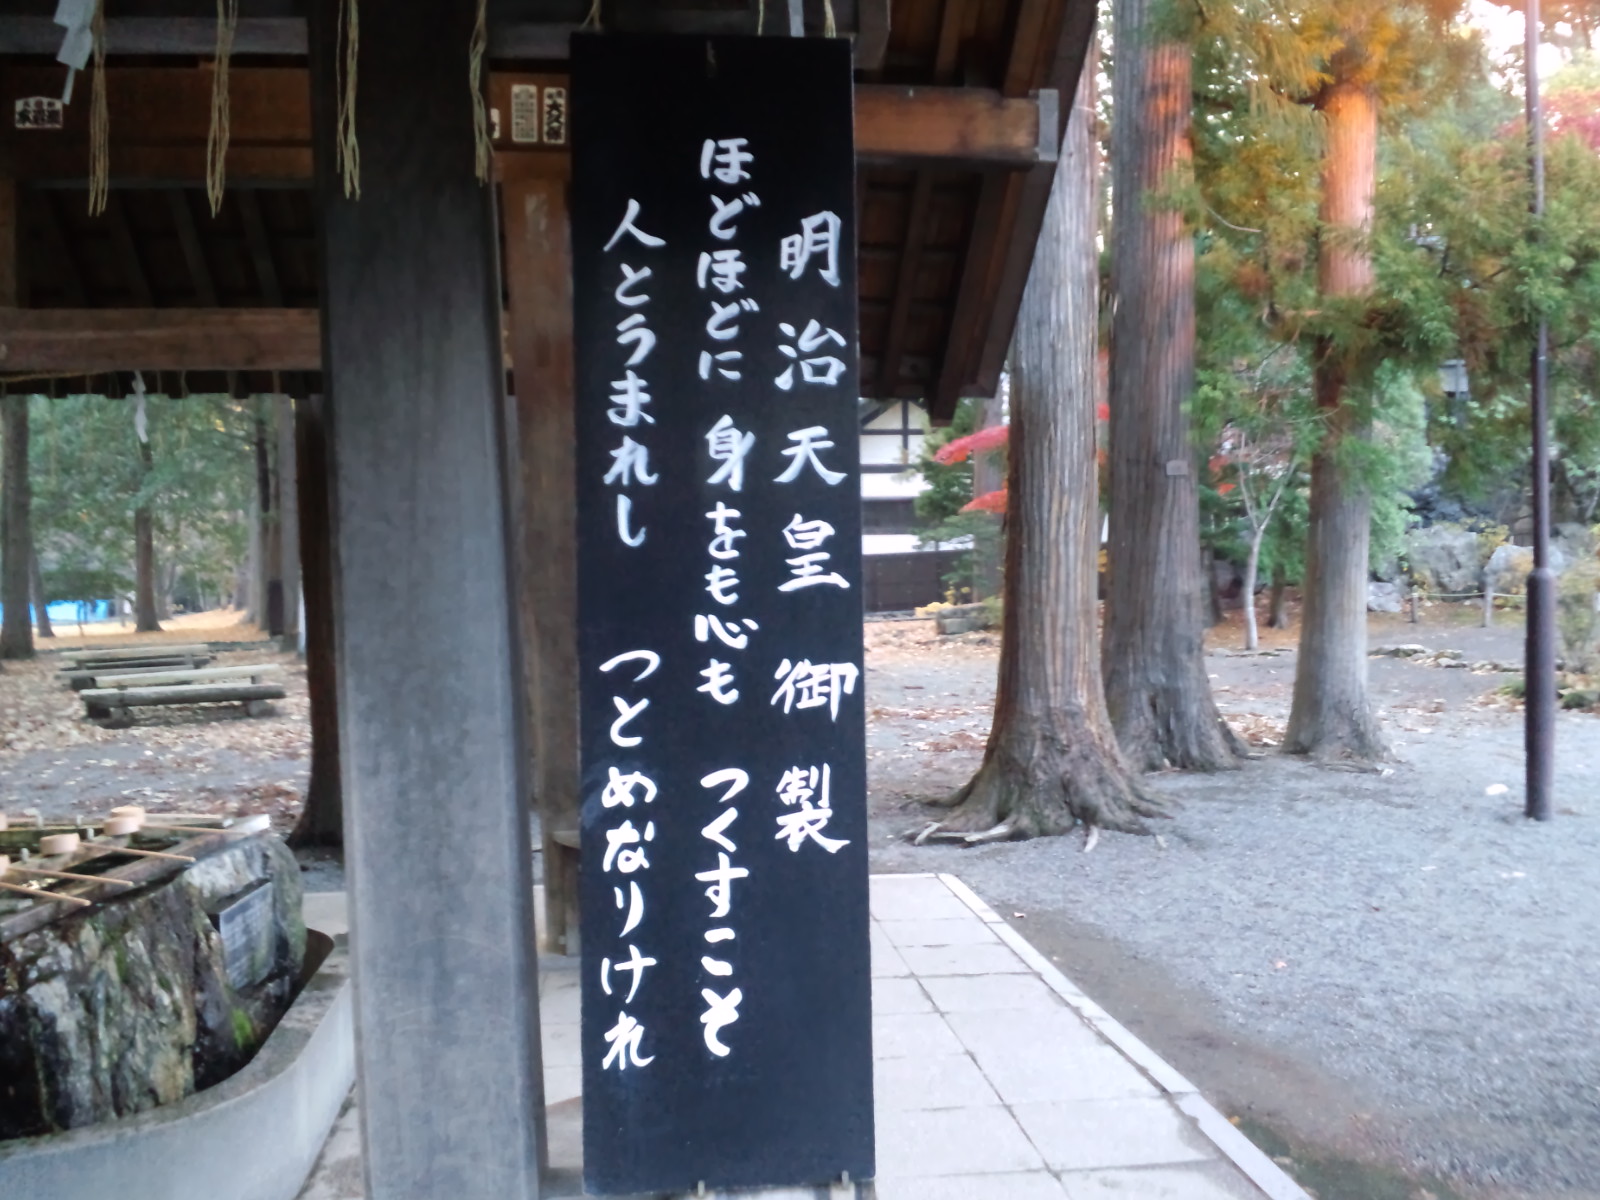 明治天皇御製
ほどほどに 身をも心も つくすこそ
人とうまれし つとめなりけれ